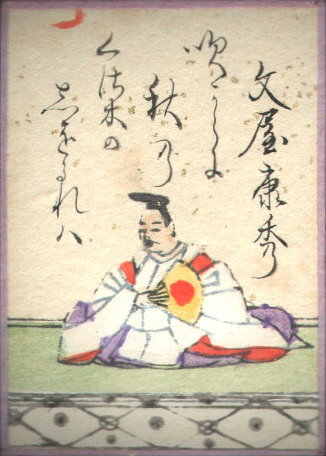 文屋康秀
吹からに
秋の
くさ木の
しをるれハ